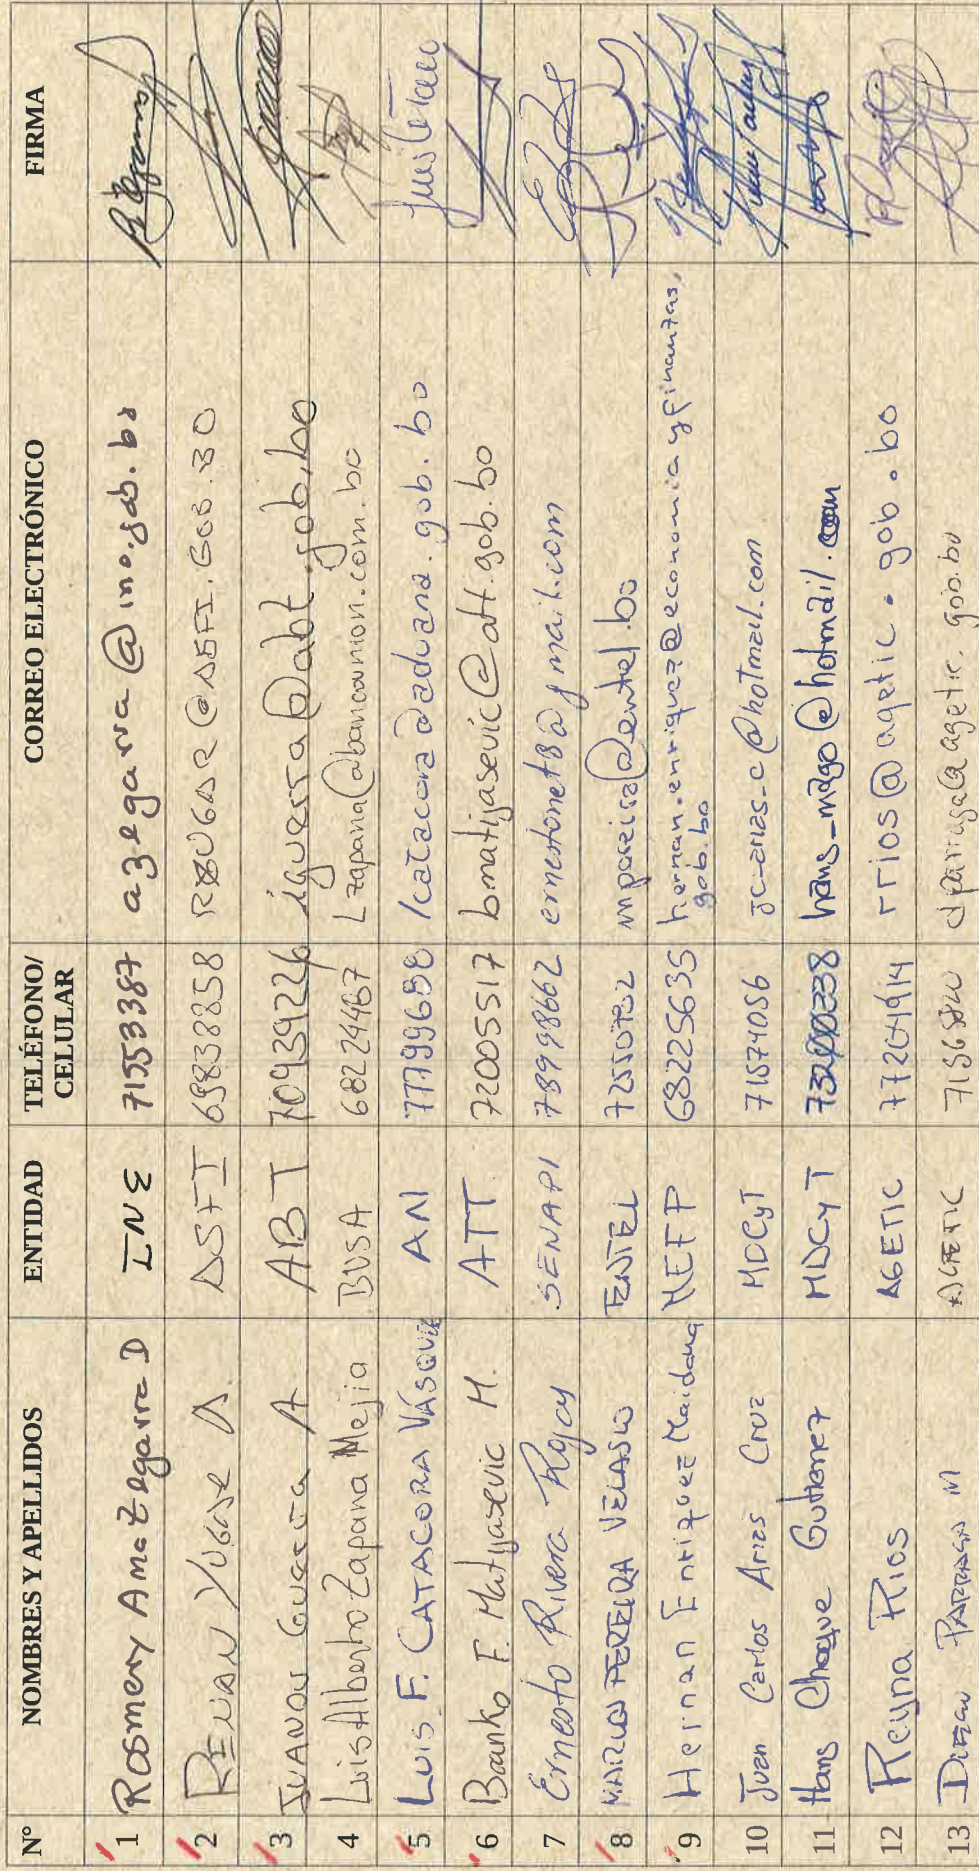 N° NOMBRES Y APELLIDOS ENTIDAD TELÉFONO/CELULAR CORREO ELECTRÓNICO FIRMA
1 Rosmery Ana Zegarra D INE 71553387 azegarra@ino.gob.bo
2 RENAN YUGAR A ASFI 69838858 RYUGAR@ASFI.GOB.BO
3 JUANOU Guerra A ABT 70939226 iguerra@abt.gob.bo
4 Luis Alberto Zapana Mejia BUSA 68224467 Lzapana@bancounion.com.bo
5 LUIS F. CATACORA VÁSQUEZ AN 77799688 lcatacora@aduana.gob.bo
6 Branko F. Matijasevic M. ATT 72005517 bmatijasevic@att.gob.bo
7 Ernesto Rivera Rojas SENAPI 78998662 ernestonet8@gmail.com
8 PEREIRA VELASCO ENTEL 72550782 mpereira@entel.bo
9 Hernan Enriquez Maidana MEFP 68225635 hernan.enriquez@economiayfinanzas.
gob.bo
10 Juan Carlos Arias Cruz MDCyT 71574056 jc-arias-c@hotmail.com
11 Hans Choque Gutierrez MDCyT hans_mago@hotmail.com
12 Reyna Rios AGETIC 77204914 rrios@agetic.gob.bo
13 PARRAGA M AGETIC dparraga@agetic.gob.bo